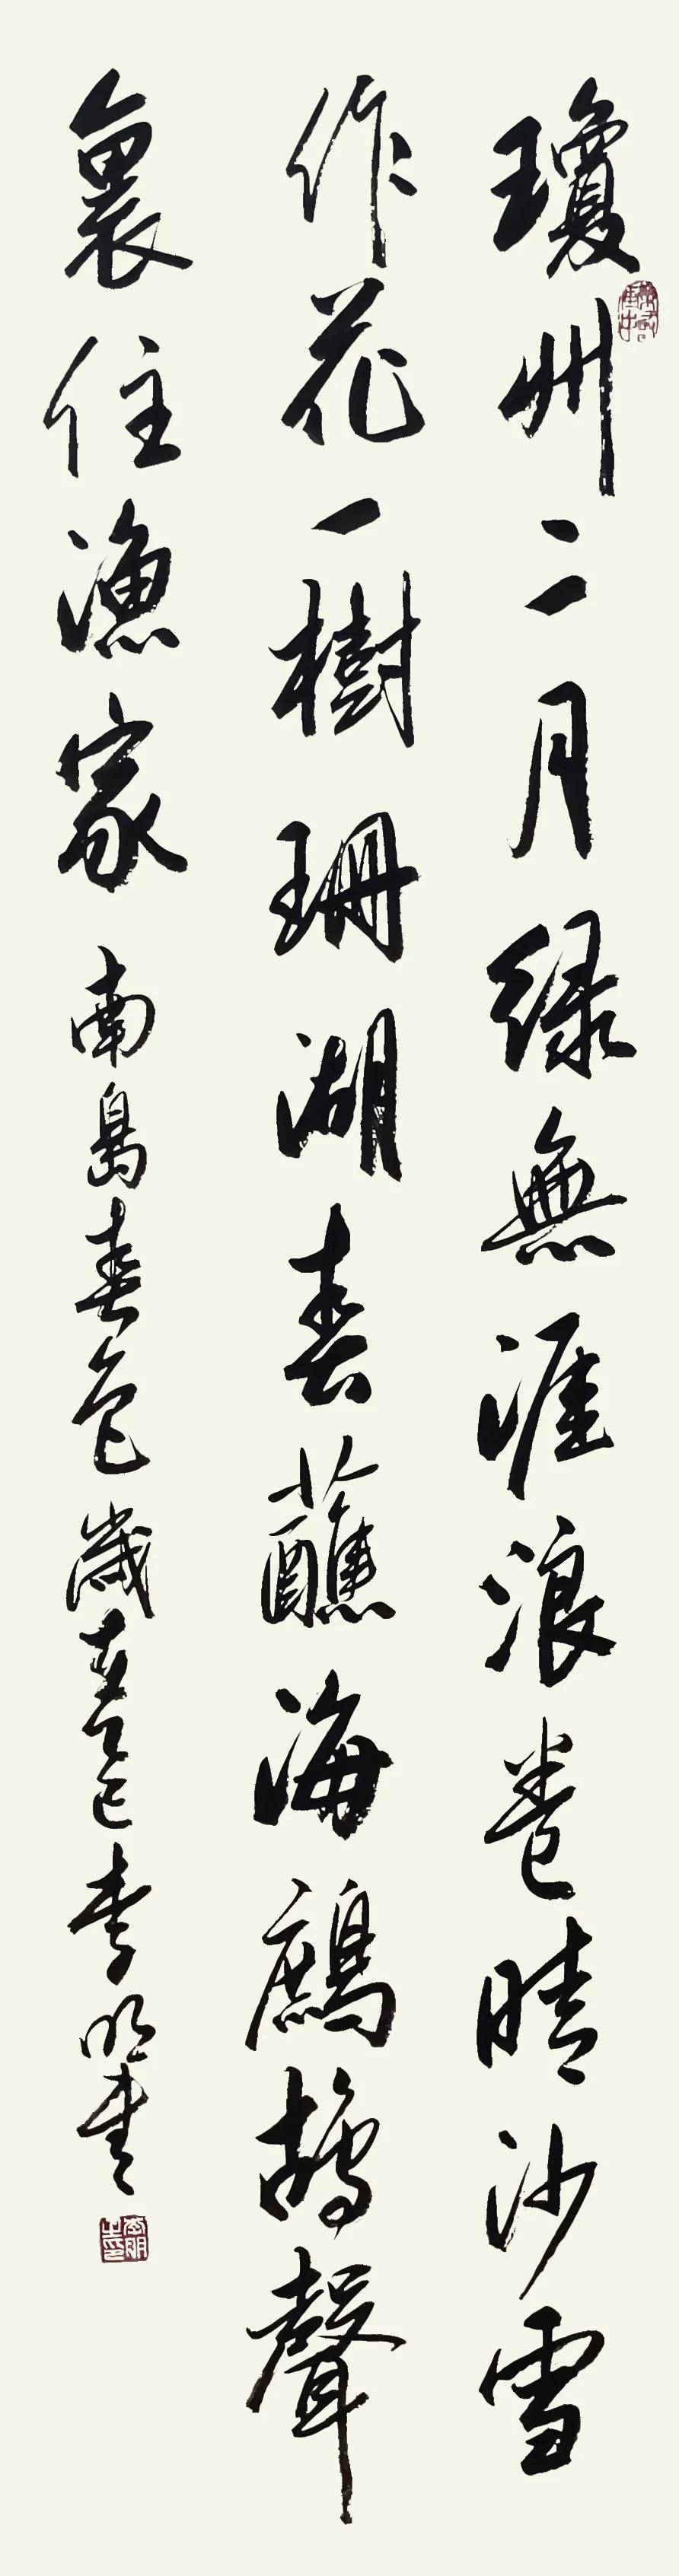 瓊州二月綠無涯浪卷晴沙雪
作花一樹珊湖春蘸海鷓鴣聲
裏住漁家 南島春色 歲在乙巳 李明書